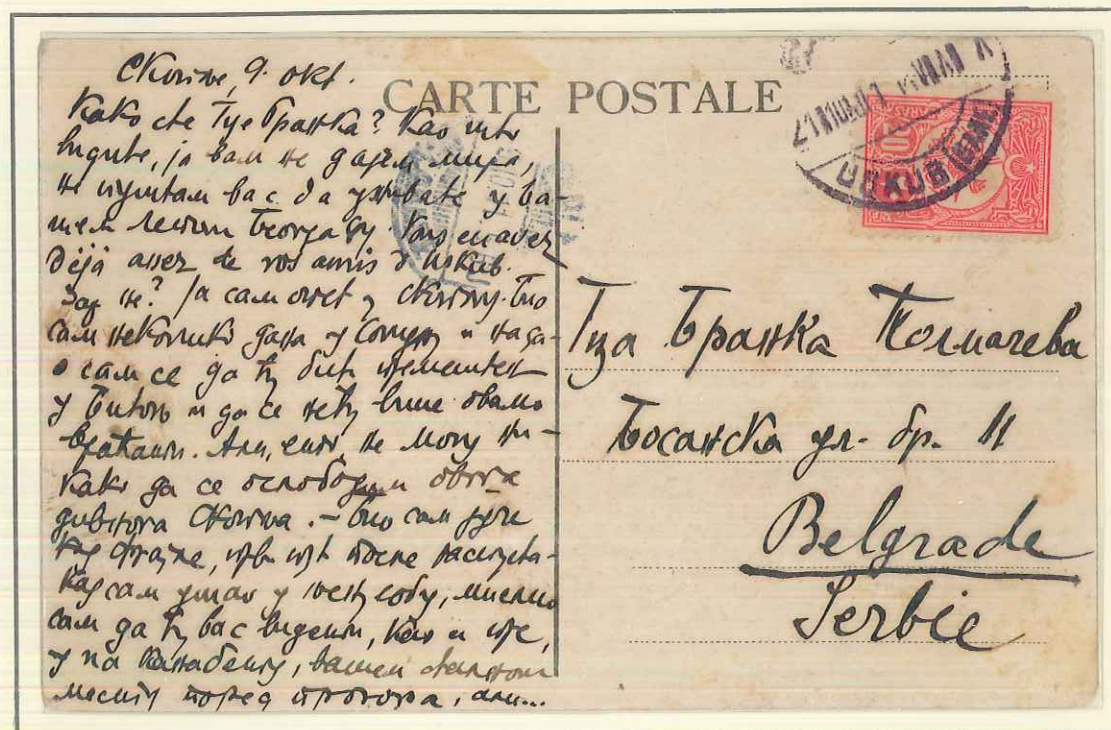 Скопље, 9. окт.
CARTE POSTALE
Како сте Гце Бранка? Као што
видите, ја вам не дајем мира,
не пуштам вас да уживате у ва-
шем лепом Београду. Vous en avez
déjà assez de vos amis d'Uskub.
Зар не? Ја сам опет у Скопљу. Био
сам неколико дана у Солуну и нада-
о сам се да ћу бити премештен
у Битољ и да се нећу више овамо
враћати. Али, ето, не могу ни-
како да се ослободим овога
дивнога Скопља. – Био сам јуче
код, први пут после распуста.
Кад сам ушао у собу, мислио
сам да ћу вас видети, као и пре,
у на канабету, вашем
месту поред прозора, али...
USKUB
10
Гца Бранка Толмачева
Босанска ул. бр. 11
Belgrade
Serbie